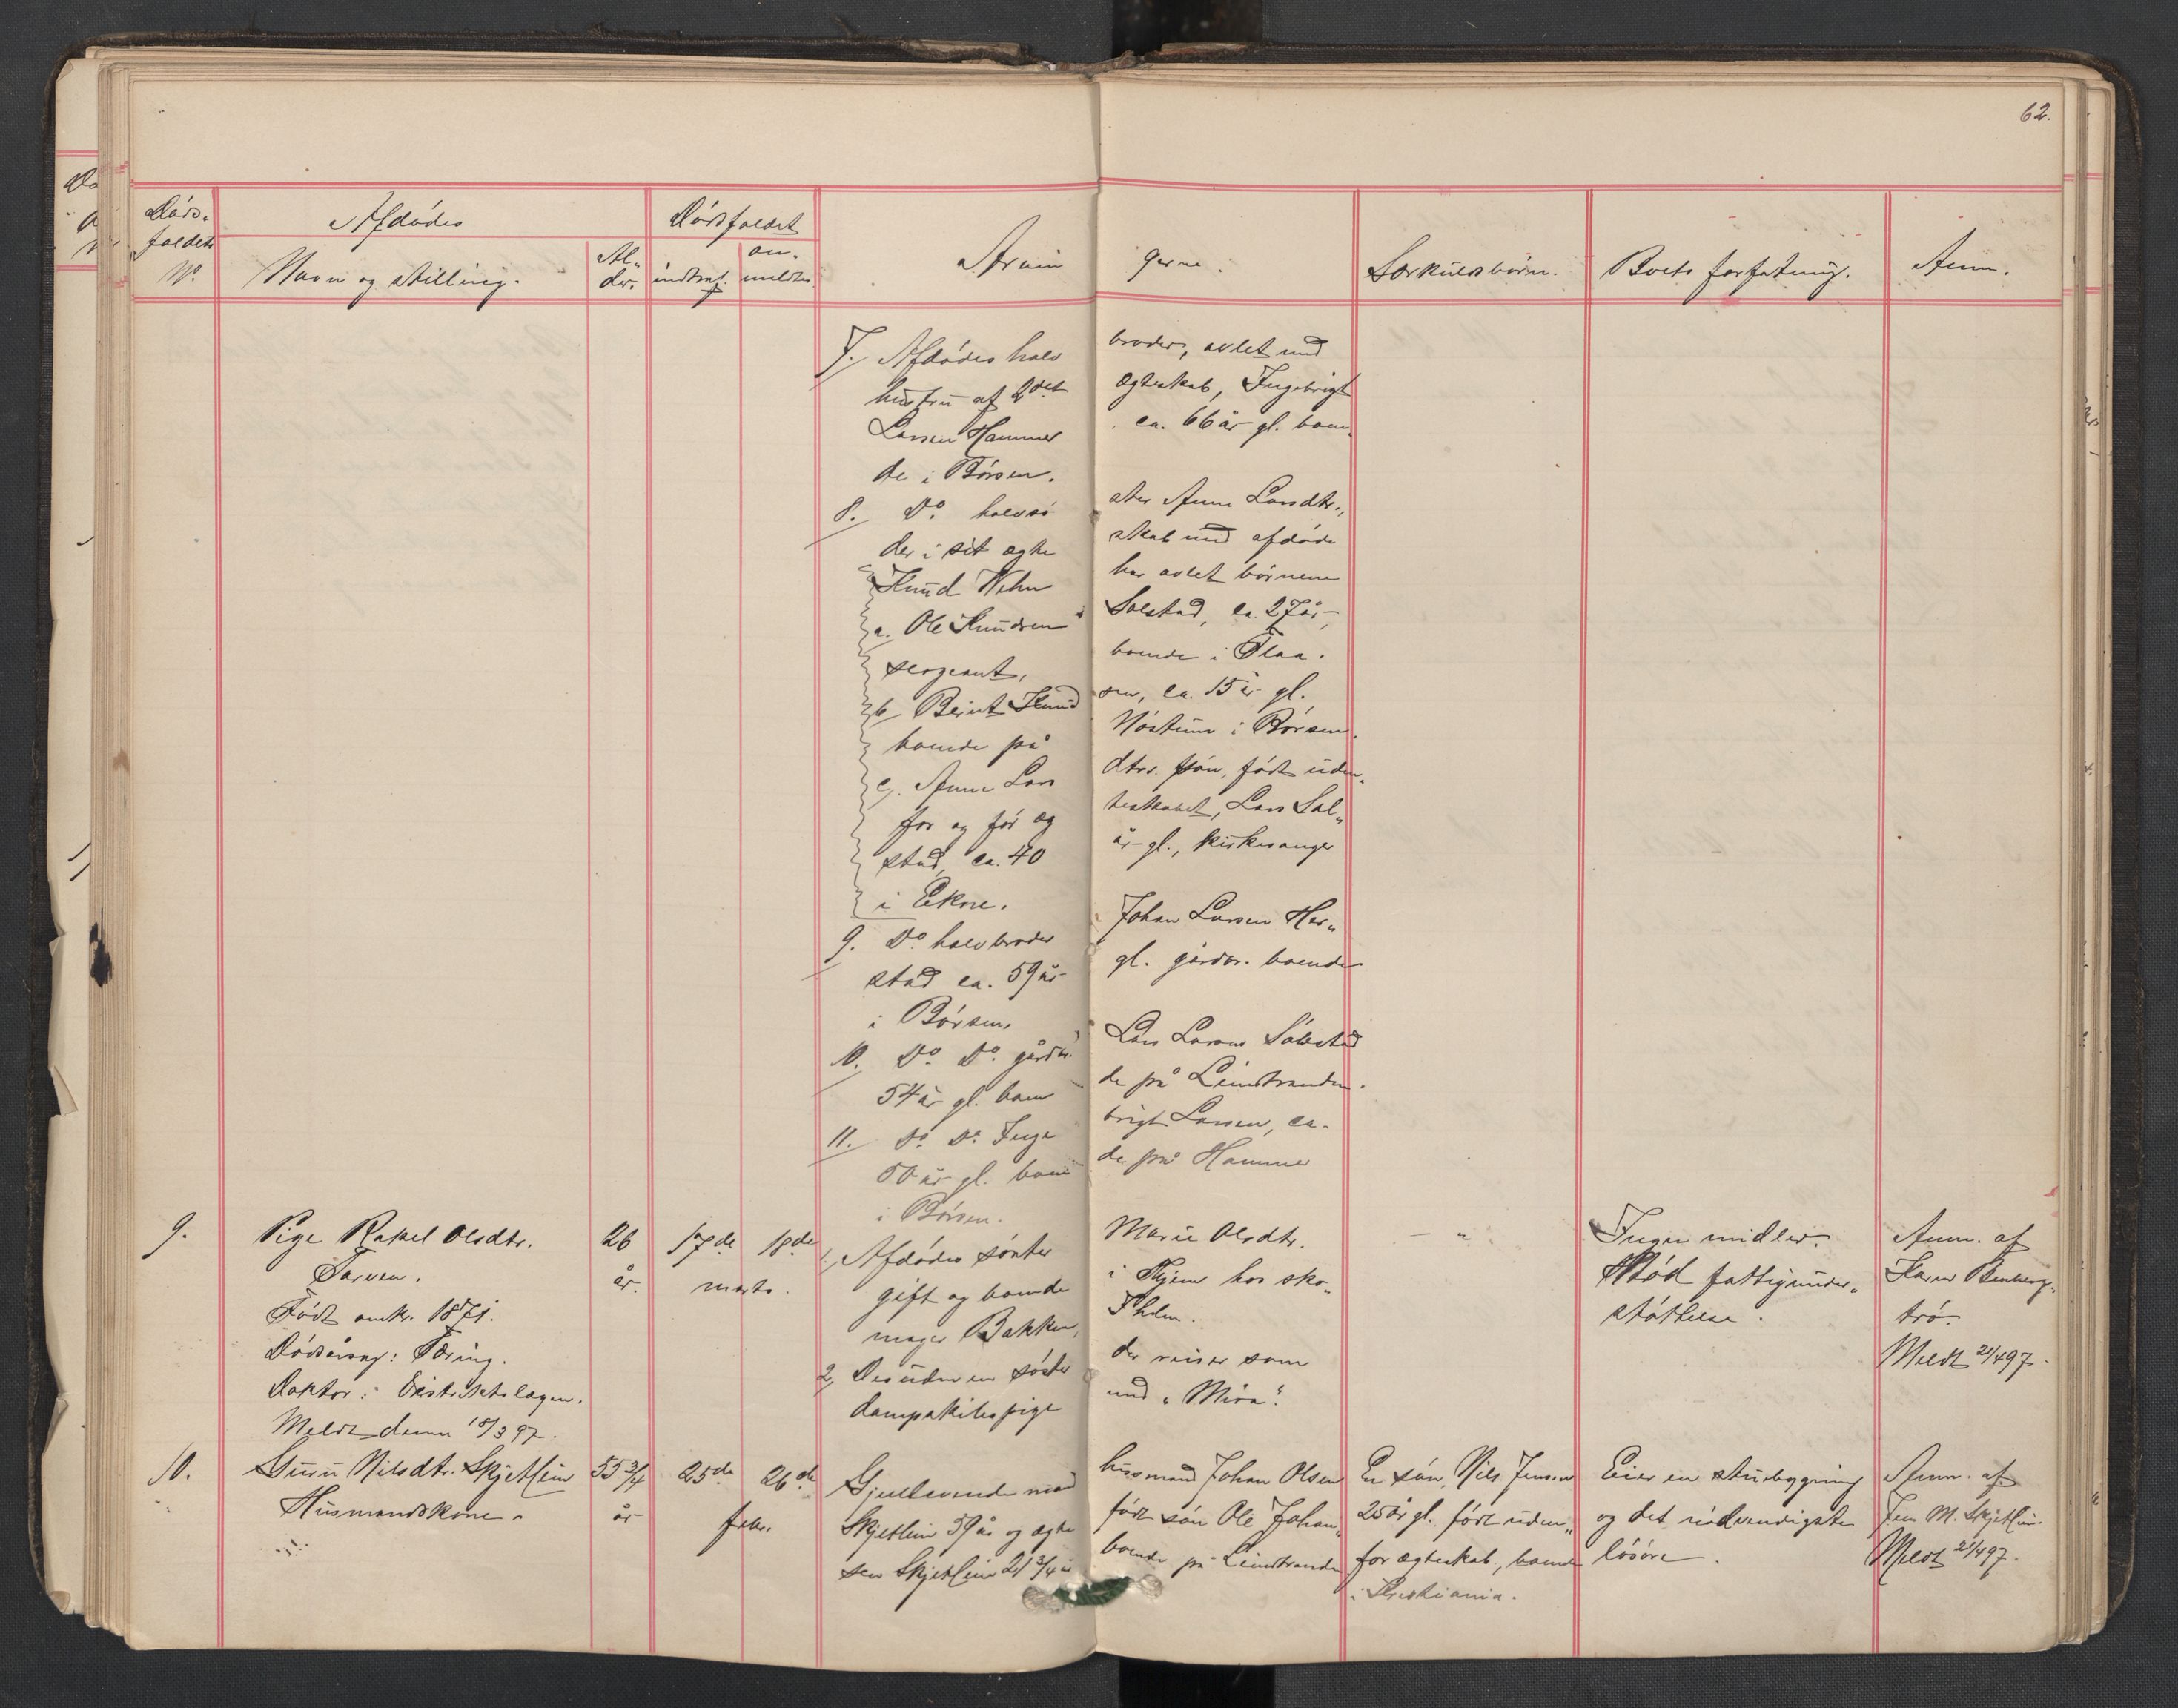 62.
Døds-
faldets
No.
Afdødes
Navn og stilling.
Al-
der.
Dødsfaldet
indtraf.
an-
meldtes.
Arvin gerne.
Særkulsbørn.
Boets forfatning.
Anm.
7. Afdødes halv broder, avlet med
hustru af 2det ægteskab, Ingebrigt
Larsen Hammer ca. 66 år gl. boen-
de i Børsen.
8. Do. halvsø ster Anne Larsdtr.,
der i sit ægte skab med afdøde
Knud Wehn har avlet børnene
a. Ole Knudsen Solstad, ca. 27 år,
sergeant, boende i Flaa.
b. Bernt Knud sen, ca. 15 år gl.
boende på Nøstum i Børsen.
c. Anne Lars dtrs. søn, født uden-
for og før æg teskabet, Lars Sol-
stad, ca. 40 år gl., kirkesanger
i Ekne.
9. Do. halvbroder Johan Larsen Her-
stad ca. 59 år gl. gårdbr. boende
i Børsen.
10. Do. Do. gårdbr. Lars Larsen Solstad
54 år gl. boen de på Leinstranden.
11. Do. Do. Inge brigt Larsen, ca.
50 år gl. boen de på Hammer
i Børsen.
9. Pige Rakel Olsdtr. 26 17de 18de 1, Afdødes søster Marie Olsdtr. - " Ingen midler. Anm. af
år. marts. gift og boende i Thjem hos sko- Nød fattigunder- Karen
Født omkr. 1871. mager Bakken, Thlm. støttelse. trø.
Dødsårsag: Tæring. 2, Desuden en søster der reiser som Meldt 21/4 97.
Doktor: Distriktslægen. dampskibspige med "Mira".
Meldt denne 18/3 97.
10. Guru Nilsdtr. Skjetlein 55 3/4 25de 26de Gjenlevende mand husmand Johan Olsen En søn, Nils Jensen Eier en stuebygning Anm. af
Husmandskone. år febr. Skjetlein 59 år og ægte født søn Ole Johan- 25 år gl. født uden- og det nødvendigste Jens M. Skjetlein.
sen Skjetlein 21 3/4 år boende på Leinstranden for ægteskab, boende løsøre. Meldt 21/4 97.
i Kristiania.